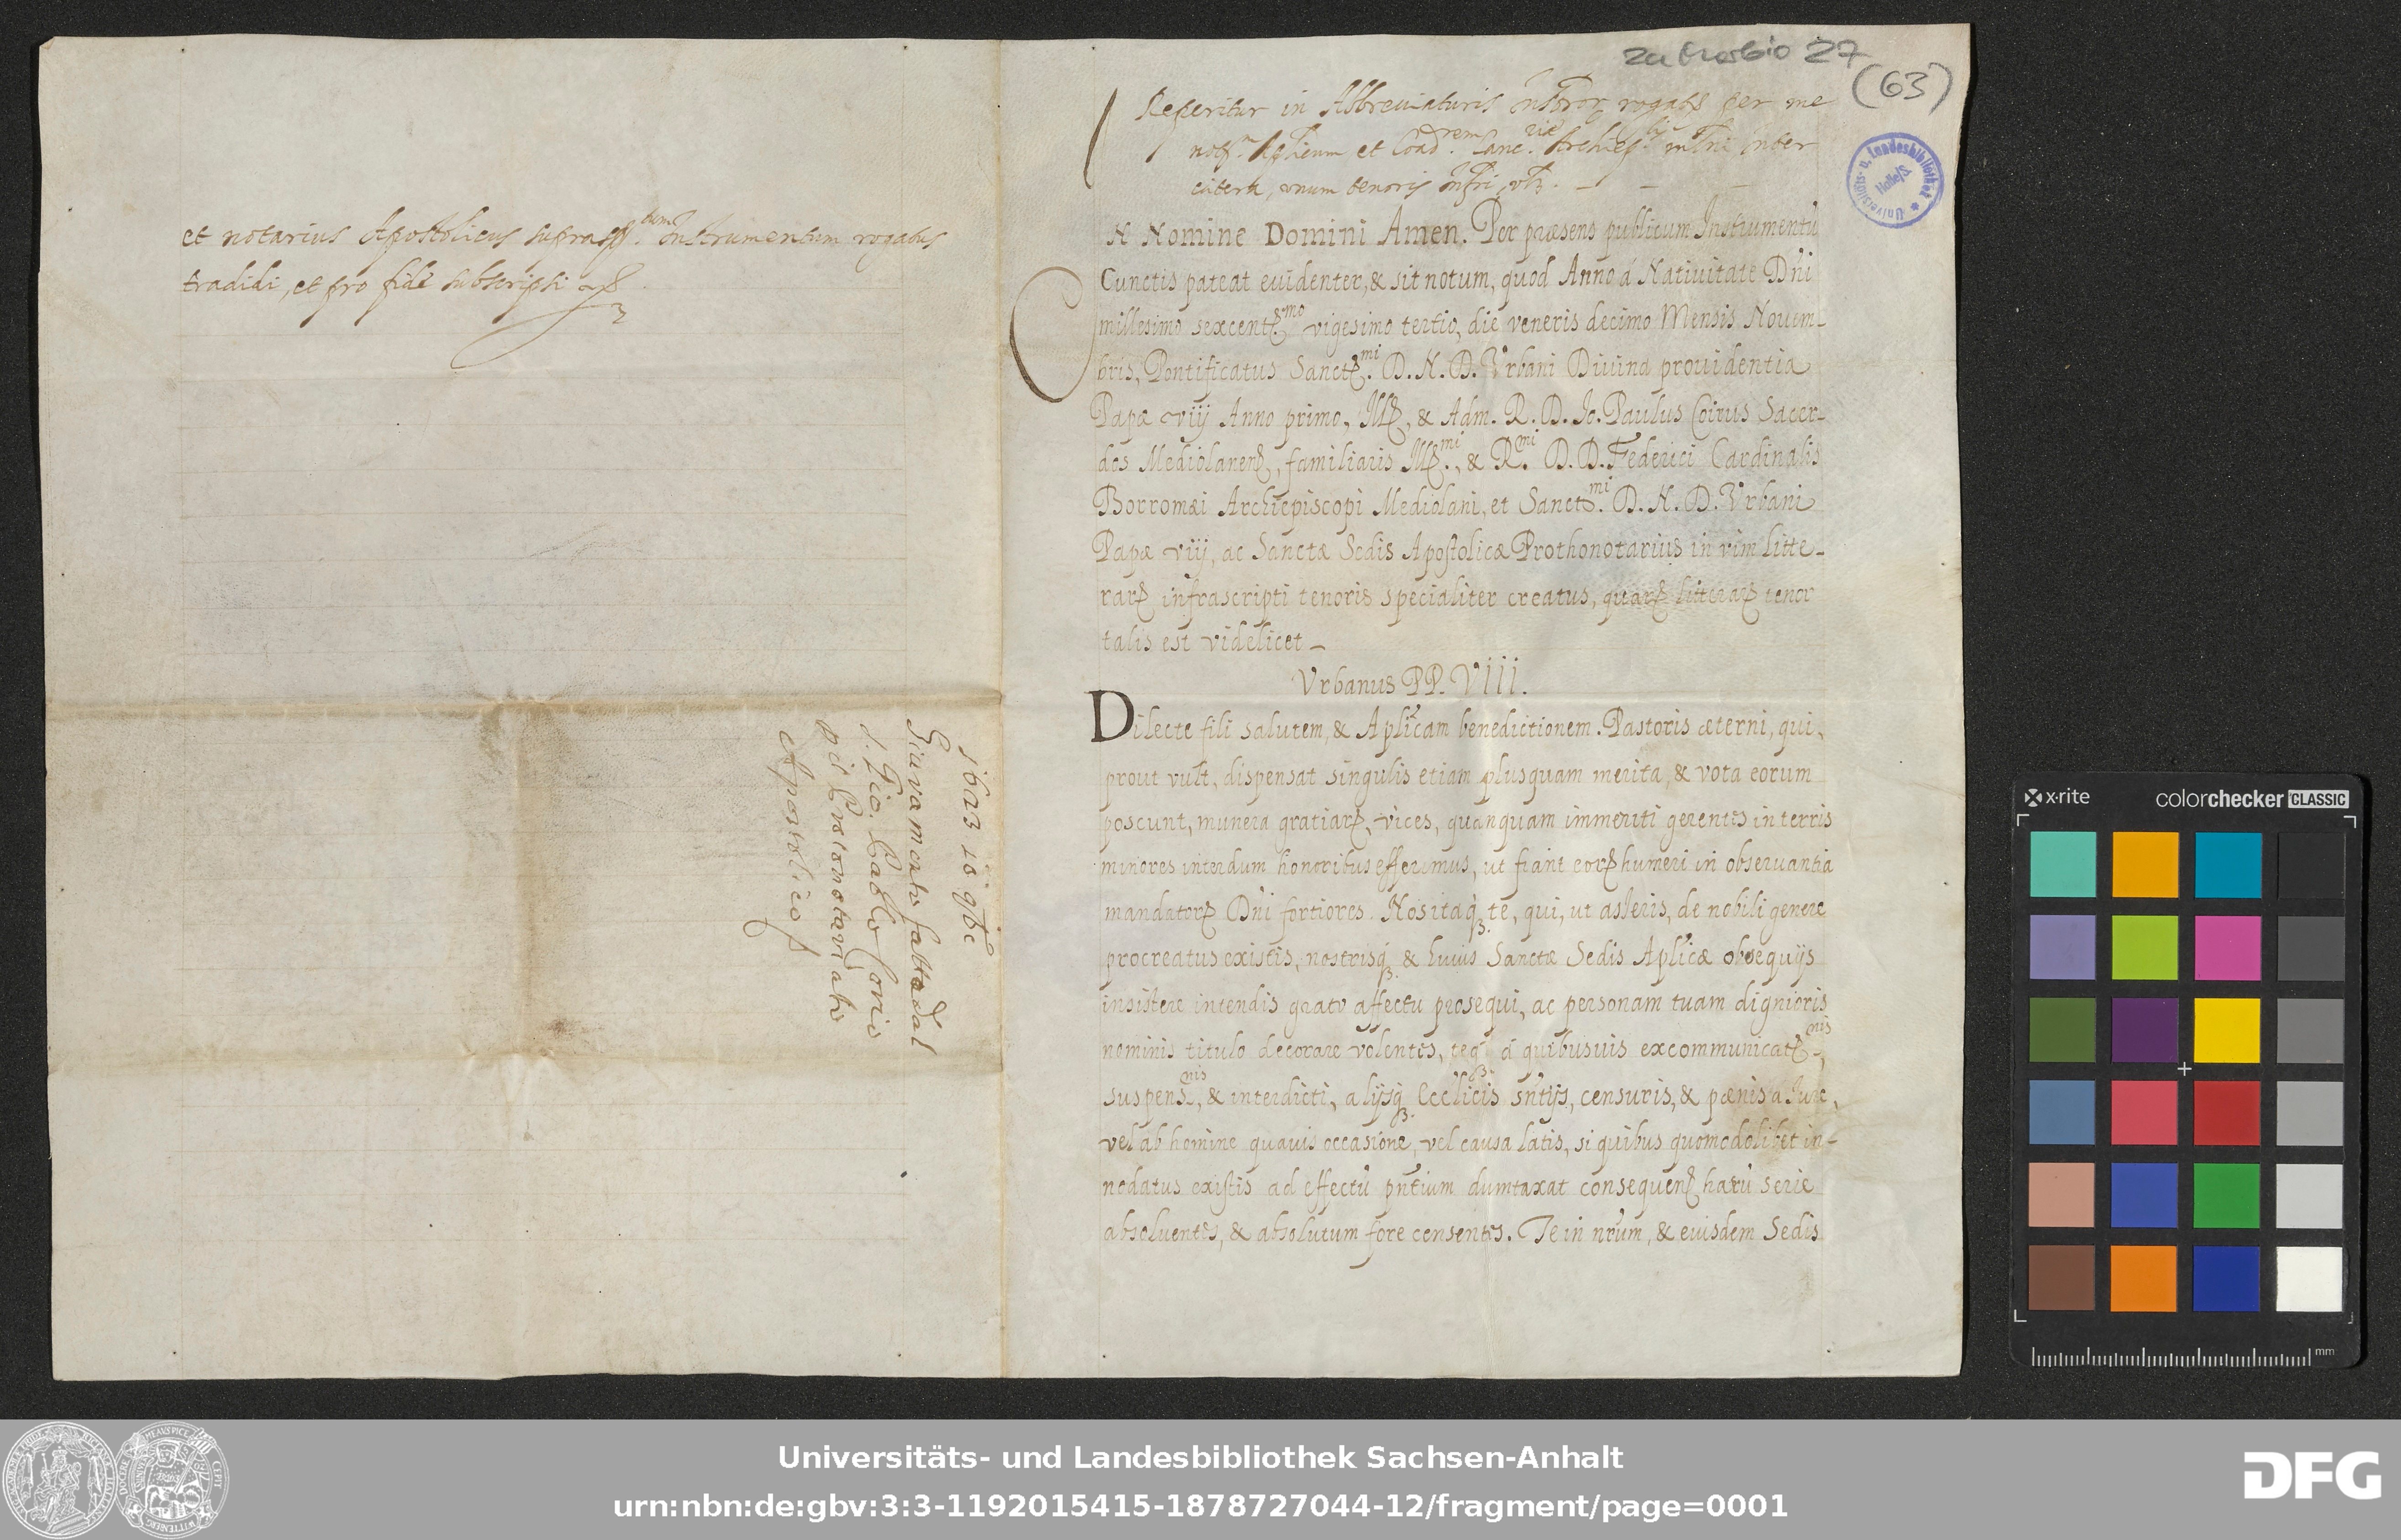 et notarius Apostolicus suprasc. tum Instrumentum rogatus
tradidi, et pro fide subscripsi
1623 10 9bre
Giuramento fatto dal
S. Gio. Paolo Corio
p il Protonotariato
Apostolico
27
(63)
Universitäts- u. Landesbibliothek
Halle/S.
Reperitur in Abbreviaturis rogatis per me
et Coad. rem Canc. riæ Inter
cætera, unum tenoris
N Nomine Domini Amen. Per præsens publicum Instrumentū
Cunctis pateat euidenter, & sit notum, quod Anno á Natiuitate Dñi
millesimo sexcent.mo vigesimo tertio, die veneris decimo Mensis Nouem-
bris, Pontificatus Sanct.mi D. N. D. Vrbani Diuina prouidentia
Papæ viij Anno primo, Ill., & Adm. R. D. Jo. Paulus Coirus Sacer-
dos Mediolanen, familiaris Ill.mi, & R.mi D. D. Federici Cardinalis
Borromæi Archiepiscopi Mediolani, et Sanct.mi D. N. D. Vrbani
Papæ viij, ac Sanctæ Sedis Apostolicæ Prothonotarius in vim litte-
rarꝝ infrascripti tenoris specialiter creatus, quarꝝ litterarꝝ tenor
talis est videlicet -
Vrbanus PP. VIII.
Dilecte fili salutem, & Aplicam benedictionem. Pastoris æterni, qui,
prout vult, dispensat singulis etiam plusquam merita, & vota eorum
poscunt, munera gratiarꝝ, vices, quanquam immeriti gerentes in terris
minores interdum honoribus efferimus, ut fiant eorꝝ humeri in obseruantia
mandatorꝝ Dñi fortiores. Nos itaq3 te, qui, ut asseris, de nobili genere
procreatus existis, nostrisq3 & huius Sanctæ Sedis Aplicæ obsequijs
insistere intendis grato affectu prosequi, ac personam tuam dignioris
nominis titulo decorare volentes, teq3 á quibusuis excommunicat.nis,
suspens.nis, & interdicti, alijsq3 Ecclicis sñtijs, censuris, & pœnis a Jure,
vel ab homine quauis occasione, vel causa latis, si quibus quomodolibet in-
nodatus existis ad effectū pñtium dumtaxat consequenꝝ harū serie
absoluentes, & absolutum fore censentes. Te in nrum, & eiusdem Sedis
x-rite
colorchecker CLASSIC
mm
Universitäts- und Landesbibliothek Sachsen-Anhalt
urn:nbn:de:gbv:3:3-1192015415-1878727044-12/fragment/page=0001
DFG